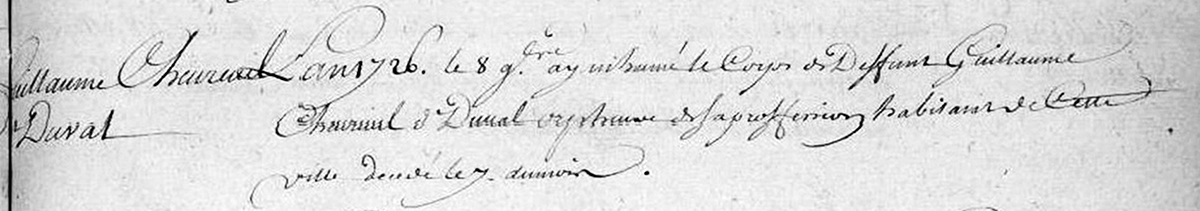 Guillaume Chevreuil L'an 1726. le 8 9.bre ay inhumé le Corps de Deffunt Guillaume
Dt Duval Chevreuil dt Duval orphevre de sa proffession habitant de Cette
ville decedé le 7. du mois .